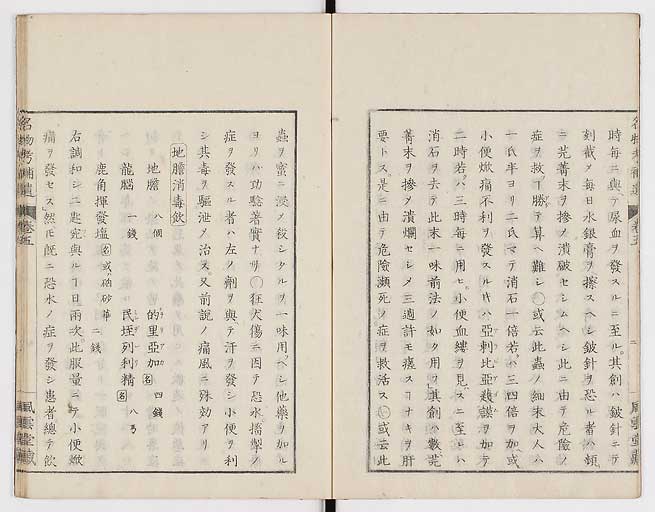 時每ニ與テ尿血ヲ發スルニ至ル。其創ハ鈹針ニテ
刻截メ每日水銀膏ヲ擦スヘシ鈹針ヲ恐ル者ハ頻
ニ芫菁末ヲ摻メ潰破セシムヘシ此ニ由テ危險ノ
症ヲ救フ丁勝テ算ヘ難シ〇或云此蟲ノ細末大人ハ
一氏半ヨリ二氏マテ消石一倍若ハ三四倍ヲ加或
小便焮痛不利ヲ發スル片ハ亞剌比亞護謨ヲ加テ
二時若ハ三時每ニ用ヒ小便血縷ヲ見スニ至レハ
消石ヲ去テ此末一味前法ノ如ク用ヘシ其創ハ數芫
菁末ヲ摻メ潰爛セシメ三週許モ瘥スコナキヲ肝
要トス是ニ由テ危險瀕死ノ症ヲ救活ス〇或云此
蟲ヲ蜜ニ浸メ殺シタルヲ一味用ヘシ他藥ヲ加ル
ヨリハ功驗著實ナリ〇狂犬傷ニ因テ恐水搐掣ノ
症ヲ發スル者ハ左ノ劑ヲ與テ汗ヲ發シ小便ヲ利
シ其毒ヲ驅泄メ治ス。又前說ノ痛風ニ殊効アリ
地膽消毒飲
地膽 八個 的里亞加 名 四錢
龍腦 一錢 民垤列利精 名 八ゟ
鹿角揮發塩 名 或硇砂華 二錢
右調和シ二匙宛與ル丁日兩次此服量ニテ小便焮
痛ヲ發セス然モ既ニ恐水ノ症ヲ發シ患者總テ飲
名物考補遺 卷五
風雲堂藏